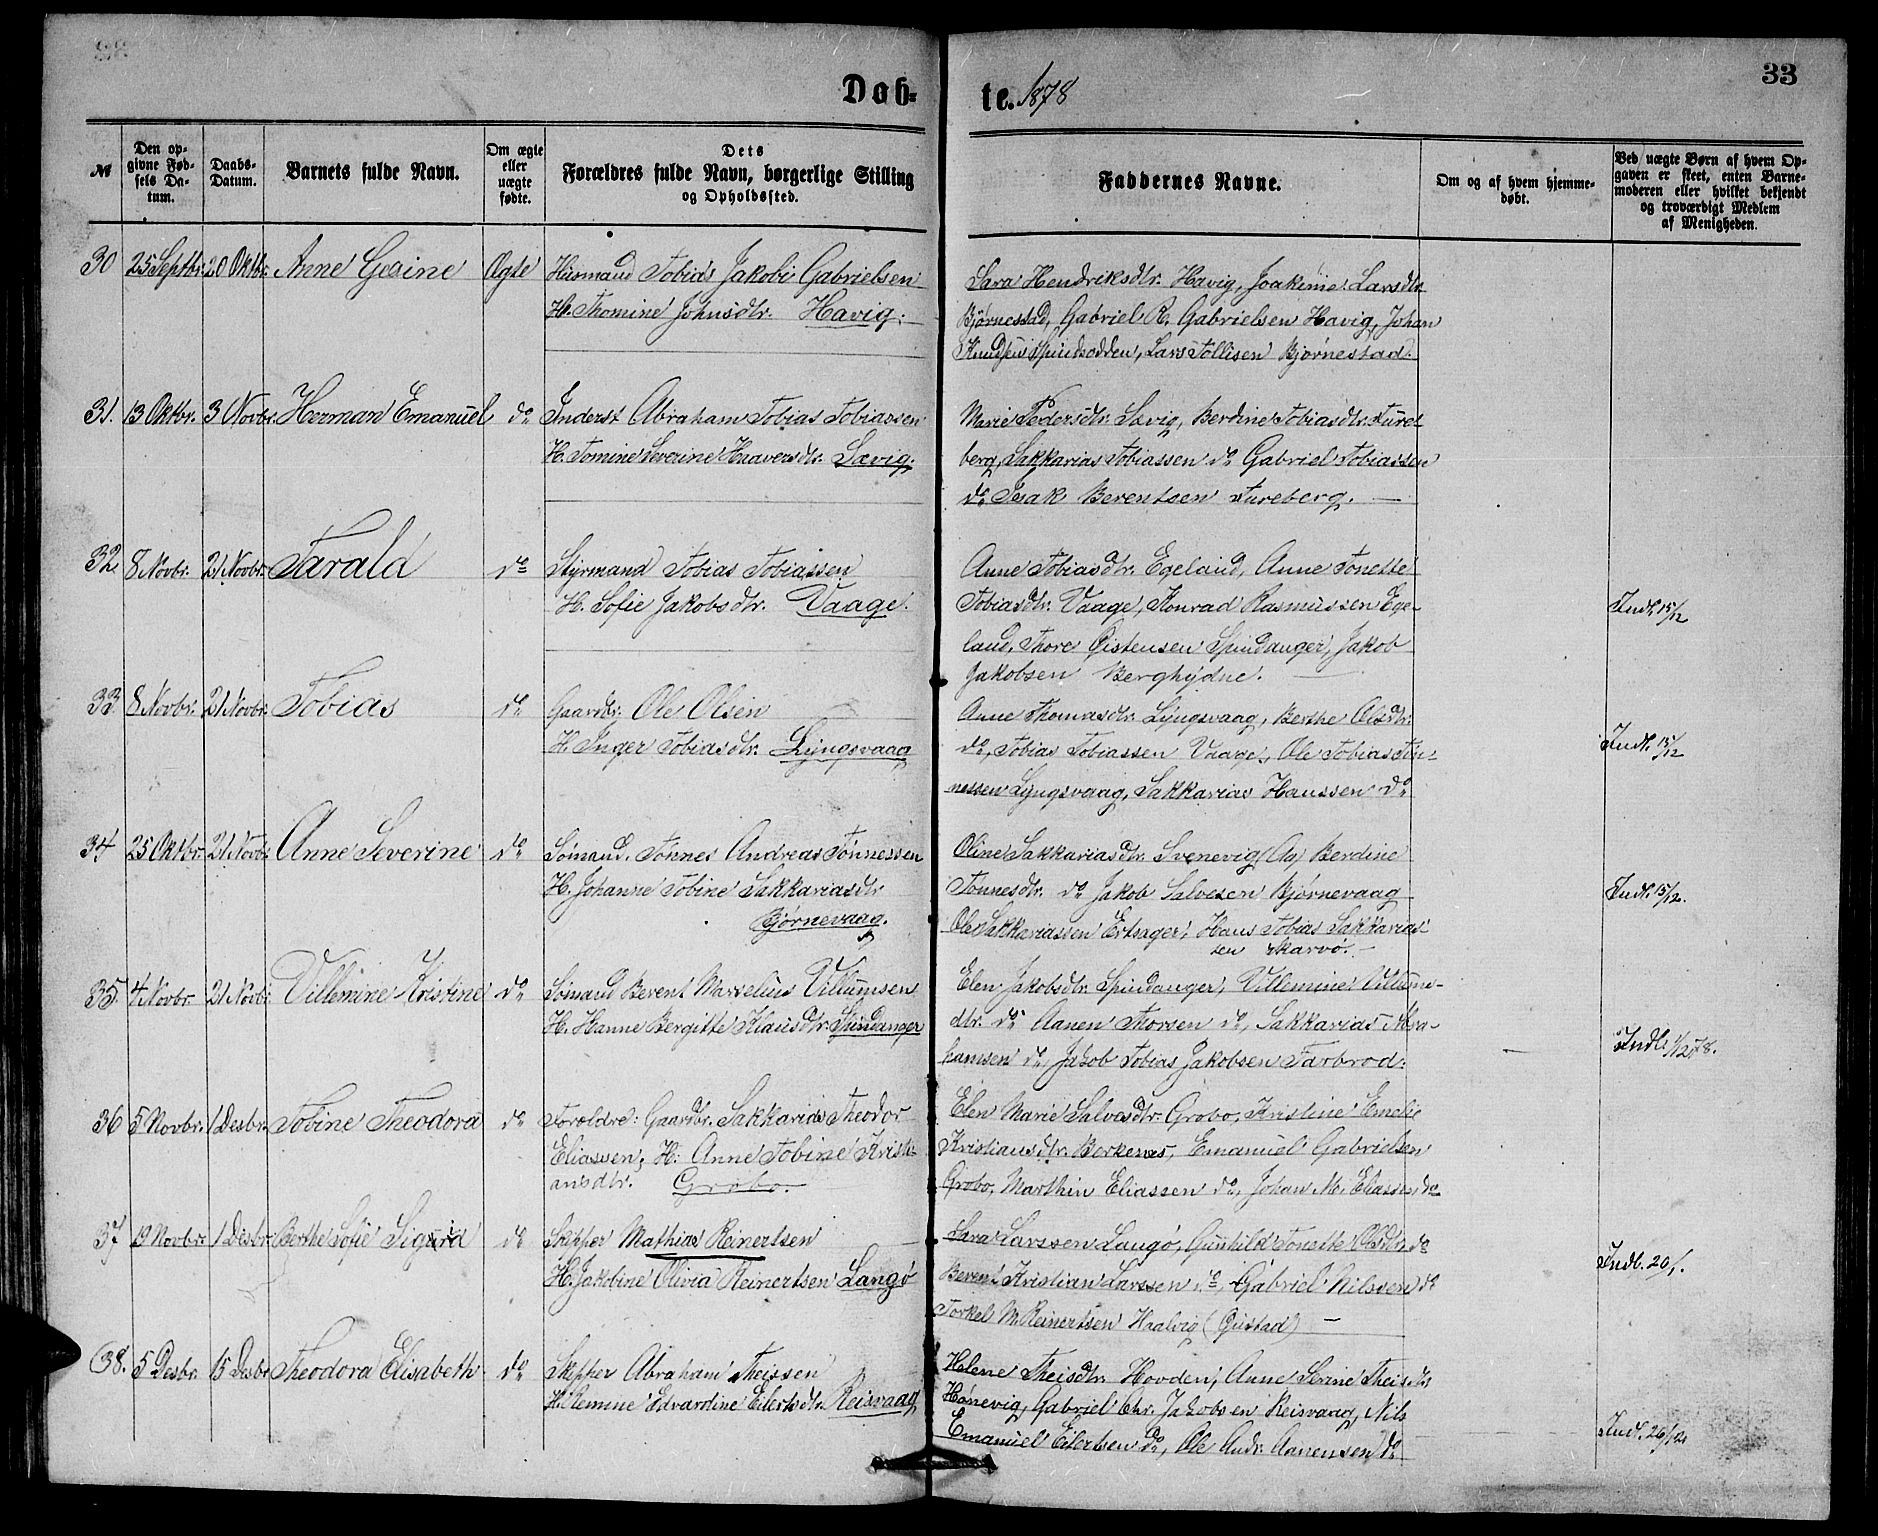 33
Døb=
te. 1878
№
Den op-
givne Fød-
sels Da-
tum.
Daabs-
Datum.
Barnets fulde Navn.
Om ægte
eller
uægte
fødte.
Dets
Forældres fulde Navn, borgerlige Stilling
og Opholdssted.
Faddernes Navne.
Om og af hvem hjemme-
døbt.
Ved uægte Børn af hvem Op-
gaven er skeet, enten Barne-
moderen eller hvilket bekjendt
og troværdigt Medlem
af Menigheden.
30 25 Septbr. 20 Oktbr. Anne Gesine Ægte Husmand Tobias Jakobi Gabrielsen
H. Thomine Johnsdtr. Havig.
Sara Hendriksdtr. Havig, Joakime Larsdtr.
Bjørnestad, Gabriel R. Gabrielsen Havig, Johan
Knudsen Spindsodden, Lars Tollisen Bjørnestad.
31. 13 Oktbr. 3 Novbr. Herman Emanuel do Inderst Abraham Tobias Tobiassen
H. Tomine Severine Haaversdtr. Sævig.
Marie Pedersdtr. Sævig, Berdine Tobiasdtr. Ture-
berg, Sakkarias Tobiassen do Gabriel Tobiassen
do Isak Berentsen Tureberg.
32. 8 Novbr. 21 Novbr. Tarald do Styrmand Tobias Tobiassen
H. Sofie Jakobsdtr. Vaage.
Anne Tobiasdtr. Egeland, Anne Tonette
Tobiasdtr. Vaage, Konrad Rasmussen Ege-
land, Thore Øistensen Spindanger, Jakob
Jakobsen Berghydne.
Indl. 15/12
33. 8 Novbr. 21 Novbr. Tobias do Gaardbr. Ole Olsen
H. Inger Tobiasdtr. Lyngsvaag
Anne Thomasdtr. Lyngsvaag, Berthe Olsdtr.
do, Tobias Tobiassen Vaage, Ole Tobias Tøn-
nessen Lyngsvaag, Sakkarias Hanssen do
Indl. 15/12
34 25 Oktbr. 21 Novbr. Anne Severine do Sømand. Tønnes Andreas Tønnessen
H. Johanne Tobine Sakkariasdtr.
Bjørnevaag.
Oline Sakkariasdtr. Svenevig (Aa) Berdine
Tønnesdtr. do Jakob Salvesen Bjørnevaag
Ole Sakkariassen Ertsager, Hans Tobias Sakkarias-
sen Skarvø.
Indl. 15/12.
35. 4 Novbr 21 Novbr. Villemine Kristine do Sømand Berent Marselius Villumsen
H. Hanne Bergitte Klausdtr. Spindanger
Elen Jakobsdtr. Spindanger, Villemine Villums-
dtr. do Aanen Thorsen do, Sakkarias Abra-
hamsen do, Jakob Tobias Jakobsen Farbrod.
Indl. 1/12 78.
36 5 Novbr. 1 Desbr. Tobine Theodora do Forældre: Gaardbr. Sakkarias Theodor
Eliassen, H: Anne Tobine Kristi-
ansdtr. Grobo.
Elen Marie Salvesdtr. Grobo, Kristine Emelie
Kristiansdtr. Berkenes, Emanuel Gabrielsen
Grobo, Marthin Eliassen do, Johan M. Eliassen do
37 19 Novbr. 1 Desbr. Berthe Sofie Sigurd do Skipper Mathias Reinertsen
H. Jakobine Olivia Reinertsen Langø
Sara Larssen Langø, Gunhild Tonette Olsdtr. do
Berent Kristian Larssen do, Gabriel Nilssen do
Torkel M. Reinertsen Haalvig (Gustad)
Indl. 20/1.
38. 5 Desbr. 15 Desbr Theodora Elisabeth do Skipper Abraham Theissen
H. Edvardine Eilertsdtr. Reisvaag
Helene Theisdtr. Hovden, Anne Serine Theisdtr
Hønevig, Gabriel Chr. Jakobsen Reisvaag, Nils
Emanuel Eilertsen do, Ole Andr. Aanensen do
Indl. 26/12